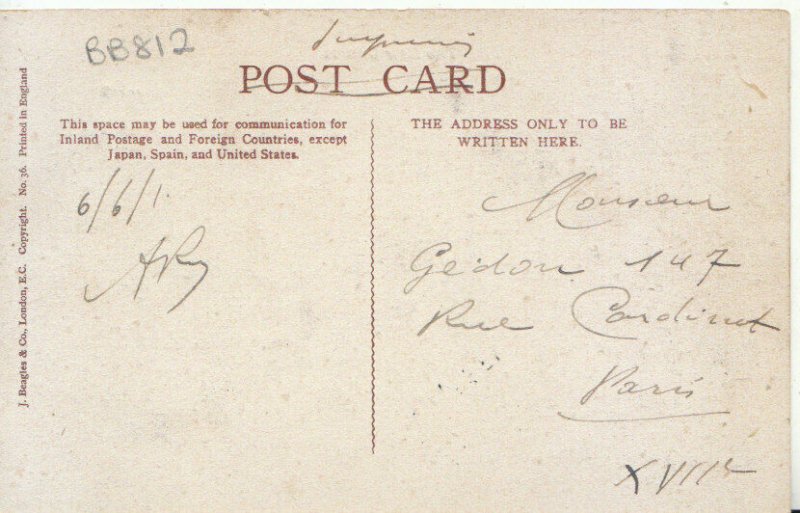 BB812
POST CARD
This space may be used for communication for
Inland Postage and Foreign Countries, except
Japan, Spain, and United States.
THE ADDRESS ONLY TO BE
WRITTEN HERE.
6/6/1.
Monsieur
Gédon 147
Rue Cardinet
Paris
XVIIe
J. Beagles & Co., London, E.C. Copyright. No. 36. Printed in England